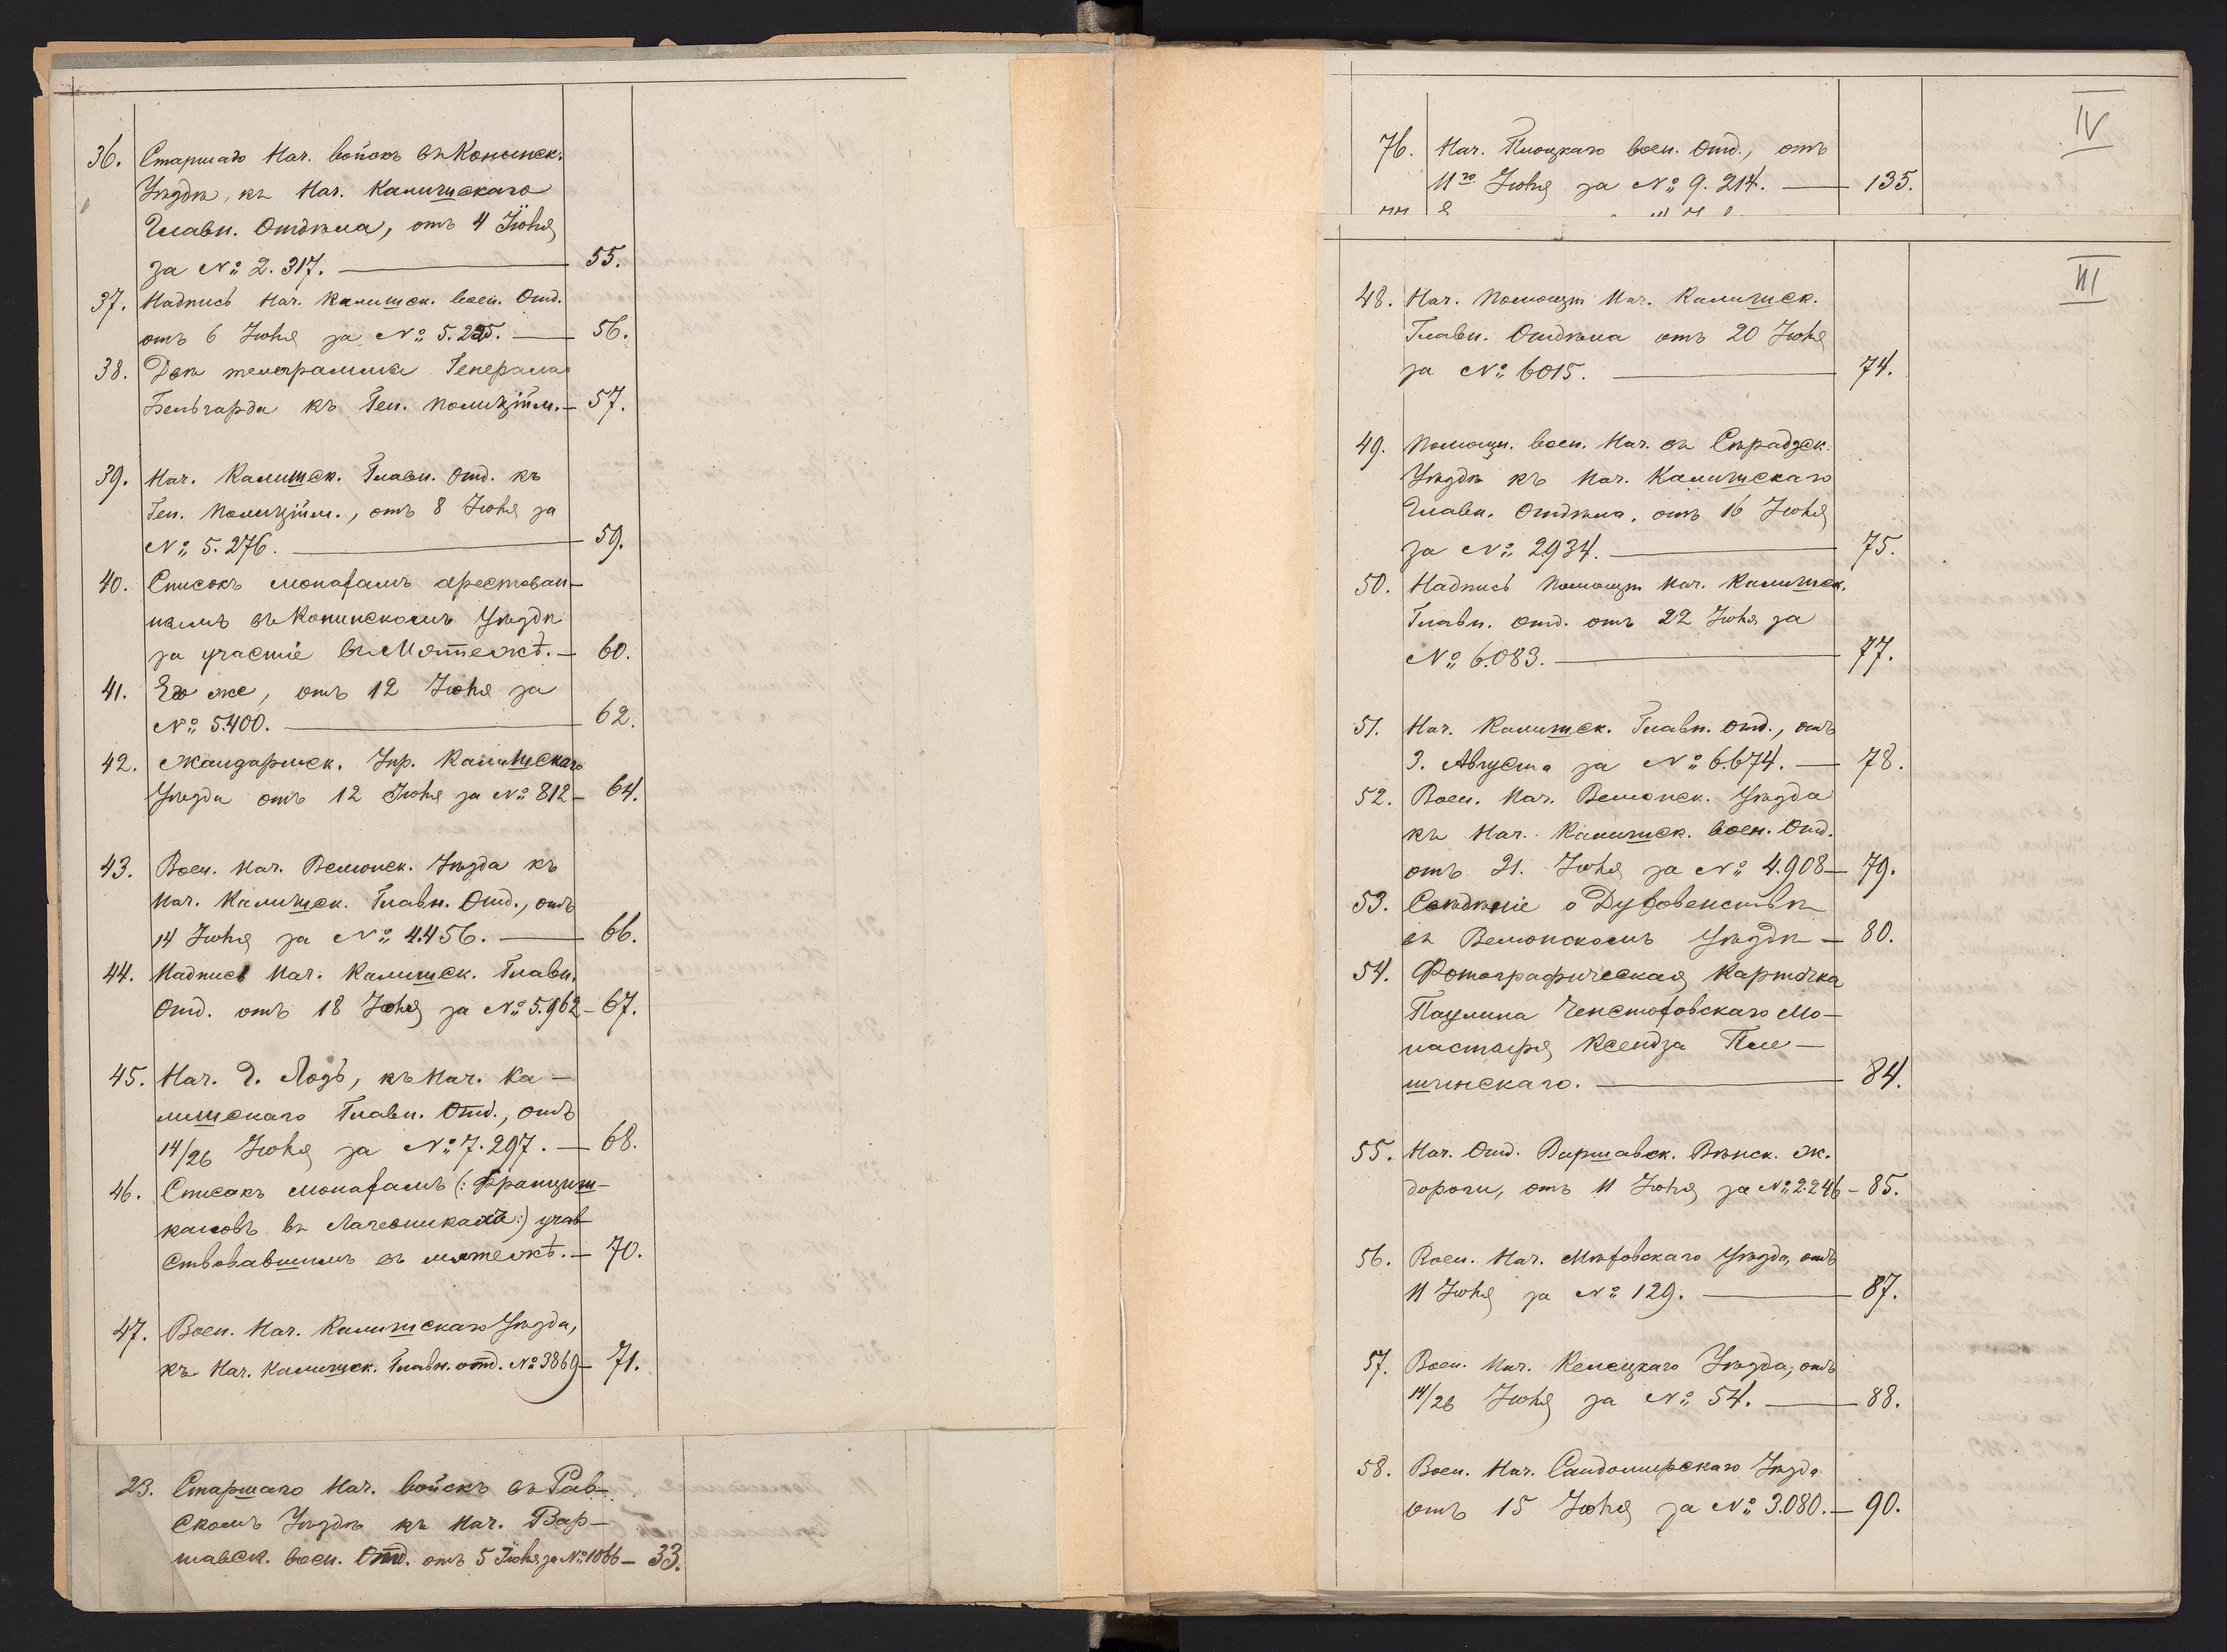 36. Старшаго Нач. войскъ въ Конинск.
Уѣздѣ, къ Нач. Калишскаго
Главн. Отдѣла, отъ 4 Іюня
за № 2.317. — 55.
37. Надпись Нач. Калишск. воен. Отд.
отъ 6 Іюня за № 5.225. — 56.
38. Двѣ телеграммы Генерала
Бельгарда къ Ген. Полиційм. — 57.
39. Нач. Калишск. Главн. Отд. къ
Ген. Полиційм., отъ 8 Іюня за
№ 5.276. — 59.
40. Списокъ монахамъ арестован-
нымъ въ Конинскомъ Уѣздѣ
за участіе въ Мятежѣ. — 60.
41. Его же, отъ 12 Іюня за
№ 5.400. — 62.
42. Жандармск. Упр. Калишскаго
Уѣзда отъ 12 Іюня за № 812 — 64.
43. Воен. Нач. Велюнск. Уѣзда къ
Нач. Калишск. Главн. Отд., отъ
14 Іюня за № 4.456. — 66.
44. Надпись Нач. Калишск. Главн.
Отд. отъ 18 Іюня за № 5.962 — 67.
45. Нач. г. Лодзь, къ Нач. Ка-
лишскаго Главн. Отд., отъ
14/26 Іюня за № 7.297. — 68.
46. Списокъ монахамъ (: Францыш-
кановъ въ Лагевникахъ :) учав-
ствовавшимъ въ мятежѣ. — 70.
47. Воен. Нач. Калишскаго Уѣзда,
къ Нач. Калишск. Главн. отд. № 3869 — 71.
23. Старшаго Нач. войскъ въ Рав-
скомъ Уѣздѣ къ Нач. Вар-
шавск. воен. Отд. отъ 5 Іюня за № 1066 — 33.
IV
76. Нач. Плоцкаго воен. Отд., отъ
11го Іюня за № 9.214. — 135.
III
48. Нач. Помощн. Нач. Калишск.
Главн. Отдѣла отъ 20 Іюня
за № 6015. — 74.
49. Помощн. воен. Нач. въ Сѣрадзск.
Уѣздѣ къ Нач. Калишскаго
Главн. Отдѣла, отъ 16 Іюня
за № 2934. — 75.
50. Надпись Помощн. Нач. Калишск.
Главн. Отд. отъ 22 Іюня за
№ 6.083. — 77.
51. Нач. Калишск. Главн. Отд., отъ
3. Августа за № 6.674. — 78.
52. Воен. Нач. Велюнск. Уѣзда
къ Нач. Калишск. воен. Отд.
отъ 21. Іюня за № 4.908 — 79.
53. Свѣдѣніе о Духовенствѣ
въ Велюнскомъ Уѣздѣ — 80.
54. Фотографическая Карточка
Паулина Ченстоховскаго Мо-
настыря Ксендза
84.
55. Нач. Отд. Варшавск. Вѣнск. Ж.
дороги, отъ 11 Іюня за № 2.246 — 85.
56. Воен. Нач. Мѣховскаго Уѣзда, отъ
11 Іюня за № 129. — 87.
57. Воен. Нач. Келецкаго Уѣзда, отъ
14/26 Іюня за № 54. — 88.
58. Воен. Нач. Сандомирскаго Уѣзда
отъ 15 Іюня за № 3.080. — 90.